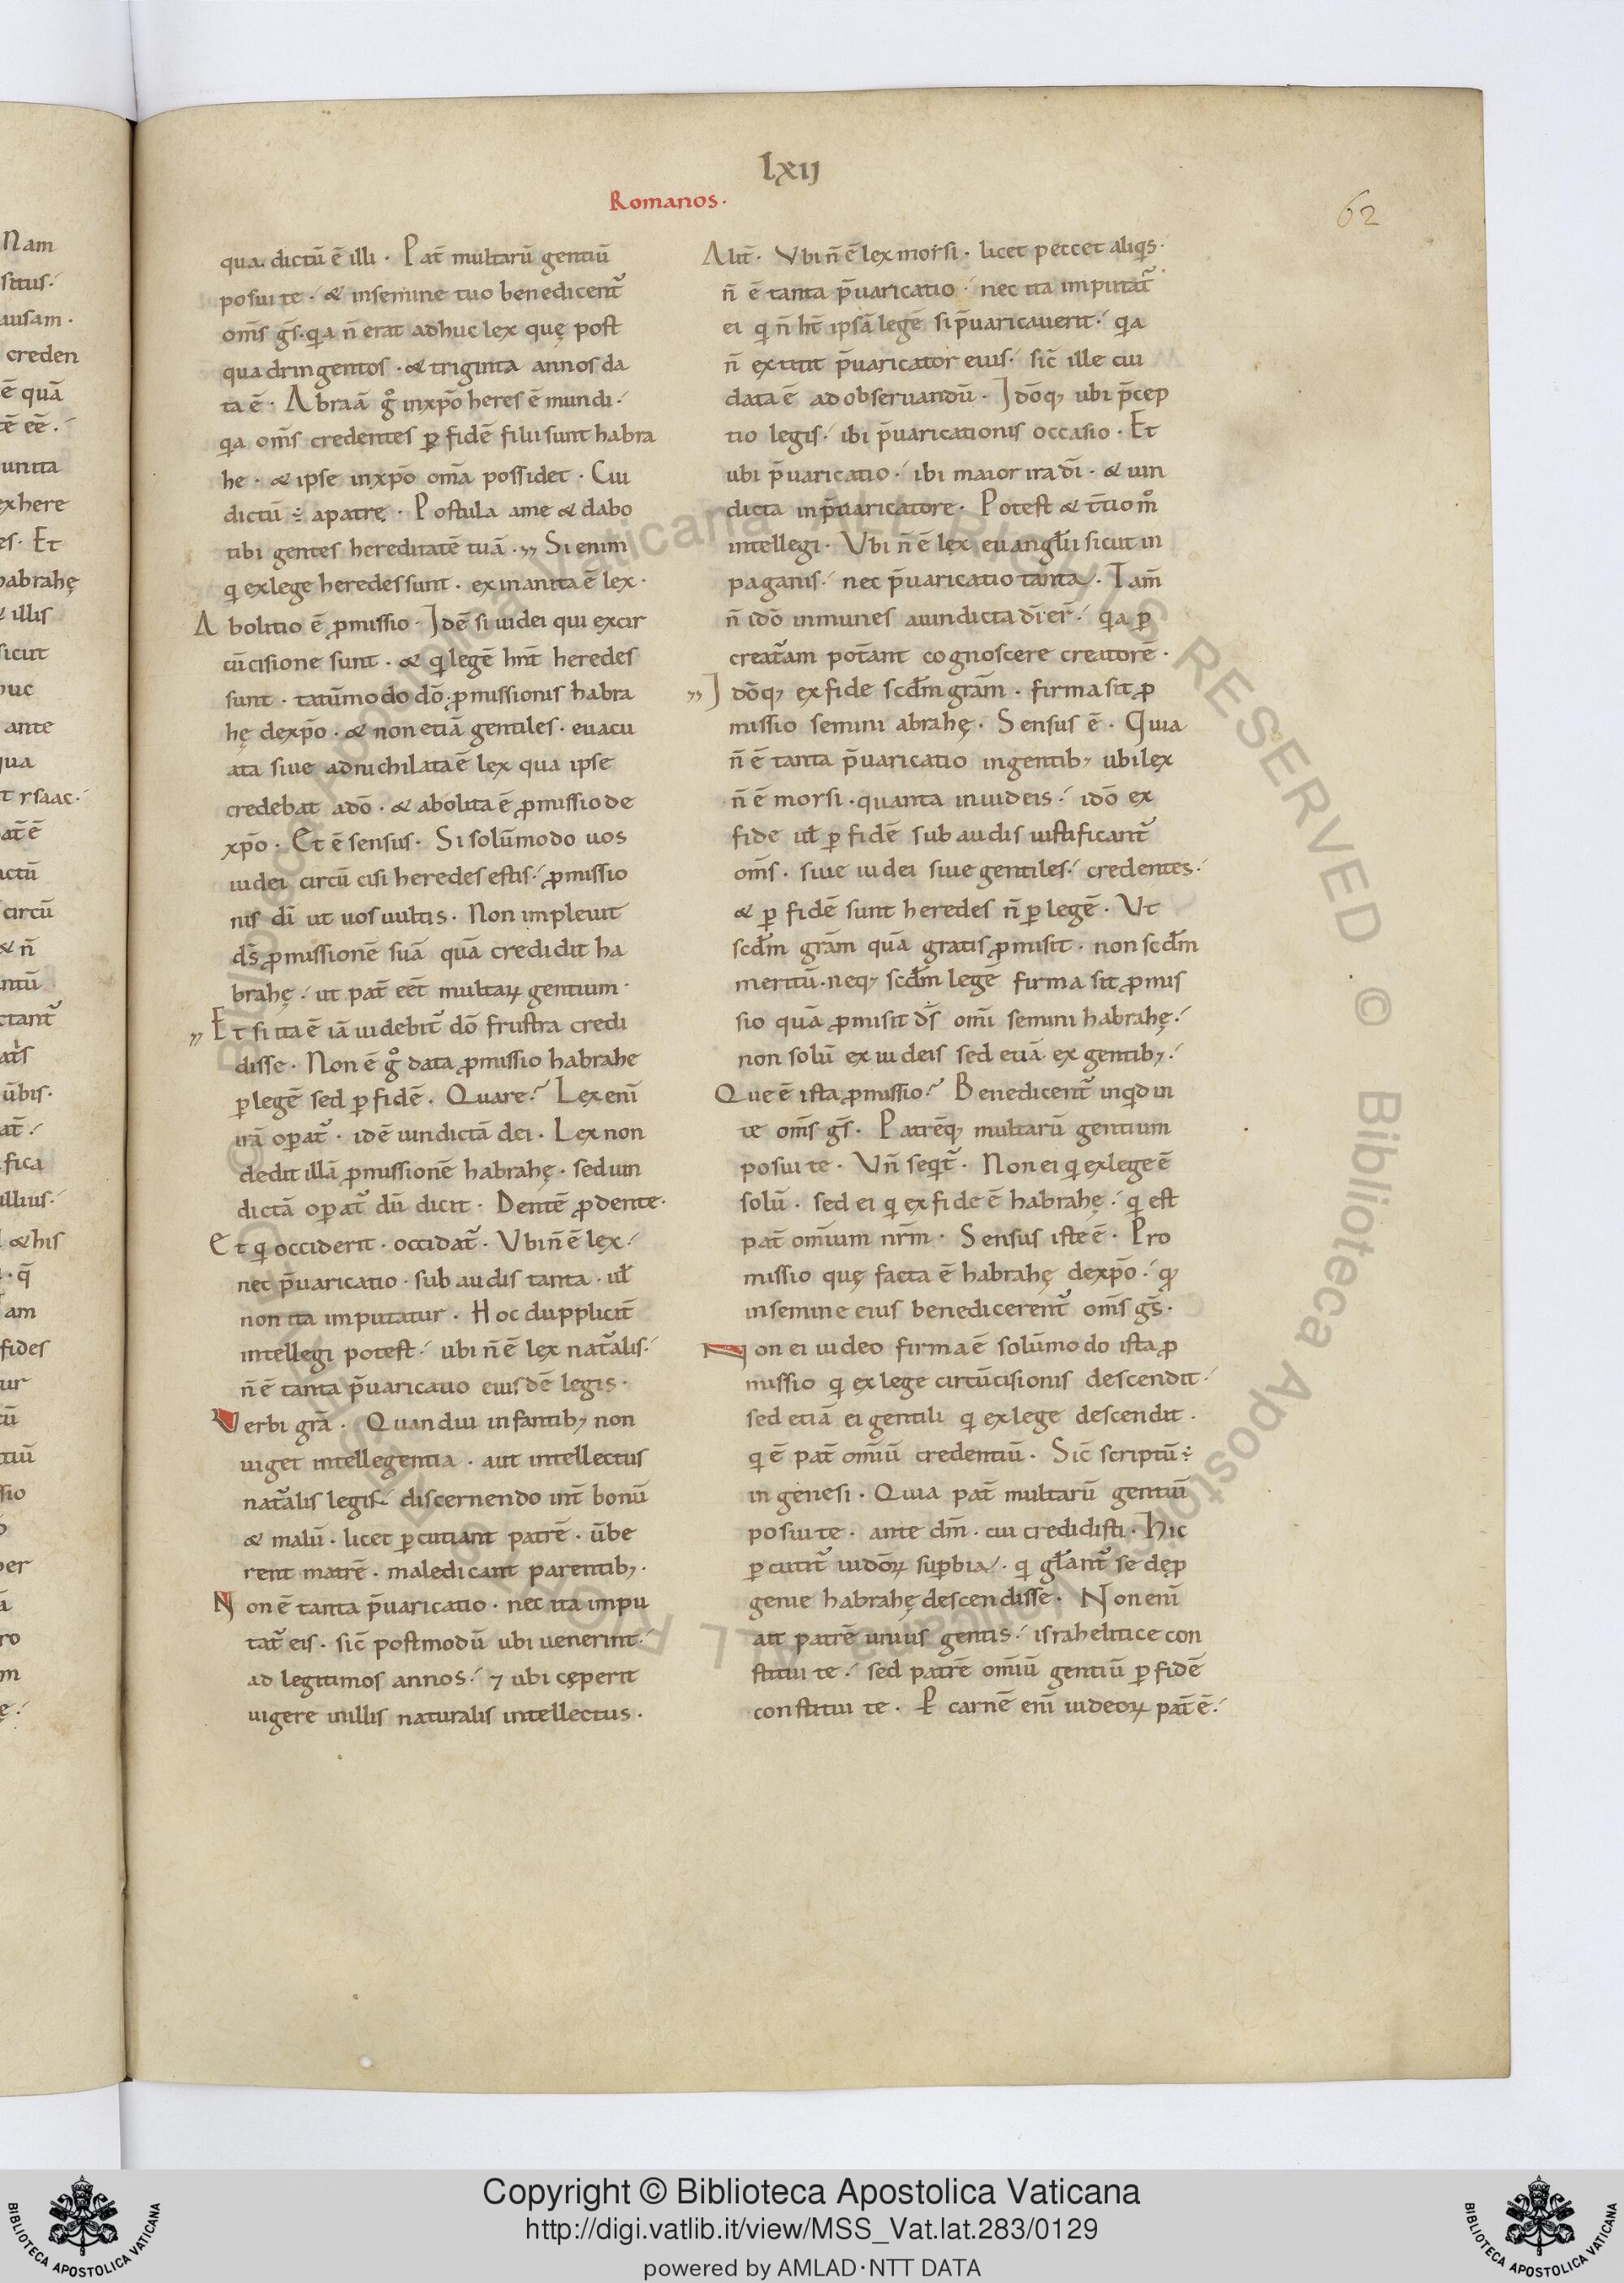 lxij
Romanos.
62
qua dictū ē illi · Pat̄ multarū gentiū
posui te · & insemine tuo benedicent᷑
om̄s gs̄ · q̇a n̄ erat adhuc lex quę post
quadringentos · & triginta annos da
ta ē · Abraā g̊ inxp̄o heres ē mundi ·
q̇a om̄s credentes ꝑ fidē filii sunt habra
he · & ipse inxp̄o om̄a possidet · Cui
dictū ÷ apatrę · Postula ame & dabo
tibi gentes hereditatē tuā · „ Si enim
q̇ exlege heredes sunt · exinanita ē lex ·
Abolitio ē ꝓmissio · Idē si iudei qui excir
cūcisione sunt · & q̇ legē hn̄t heredes
sunt · tatūmodo dō · ꝓmissionis habra
hę dexp̄o · & non etiā gentiles · euacu
ata siue adnichilata ē lex qua ipse
credebat adō · & abolita ē ꝓmissio de
xp̄o · Et ē sensus · Si solūmodo uos
iudei circū cisi heredes estis · ꝓmissio
nis dī ut uos uultis · Non impleuit
ds̄ ꝓmissionē suā quā credidit ha
brahę · ut pat̄ eēt multaꝝ gentium ·
„ Et si ita ē iā uidebit᷑ dō frustra credi
disse · Non ē g̊ data ꝓmissio habrahe
ꝑ legē sed ꝑ fidē · Quare ? Lex enī
irā oꝑat᷑ · idē uindictā dei · Lex non
dedit illā ꝓmissionē habrahę · sed uin
dictā oꝑat᷑ dū dicit · Dentē ꝓ dente ·
Et q̇ occiderit · occidat᷑ · Vbi n̄ ē lex ·
nec p̄uaricatio · subaudis tanta · ul̄
non ita imputatur · Hoc dupplicit̄
intellegi potest · ubi n̄ ē lex nat᷑alis ·
n̄ ē tanta p̄uaricatio eiusdē legis ·
Verbi grā · Quandiu infantibꝫ non
uiget intellegentia · aut intellectus
nat᷑alis legis · discernendo int̄ bonū
& malū · licet ꝑcutiant patrē · ūbe
rent matrē · maledicant parentibꝫ ·
Non ē tanta p̄uaricatio · nec ita impu
tat᷑ eis · sic̄ postmodū ubi uenerint ·
ad legitimos annos · ⁊ ubi cęperit
uigere inillis naturalis intellectus ·
Alit̄ · Vbi n̄ ē lex moysi · licet peccet aliq̇s ·
n̄ ē tanta p̄uaricatio · nec ita imputat᷑
ei q̇ n̄ ht̄ ipsā legē si p̄uaricauerit · q̇a
n̄ extitit p̄uaricator eius · sic̄ ille cui
data ē ad obseruandū · Idōqꝫ ubi p̄cep
tio legis · ibi p̄uaricationis occasio · Et
ubi p̄uaricatio · ibi maior ira dī · & uin
dicta inp̄uaricatore · Potest & t̄tio m̊
intellegi · Vbi n̄ ē lex euangl̄ii sicut in
paganis · nec p̄uaricatio tanta · Tam̄
n̄ idō inmunes auindicta dī er̄ · q̇a ꝑ
creat᷑am pot̄ant cognoscere creatorē ·
„ Idōqꝫ ex fide scd̄m grām · firma sit ꝓ
missio semini abrahę · Sensus ē · Quia
n̄ ē tanta p̄uaricatio ingentibꝫ ubi lex
n̄ ē moysi · quanta iniudeis · idō ex
fide ul̄ ꝑ fidē subaudis iustificant᷑
om̄s · siue iudei siue gentiles · credentes ·
& ꝑ fidē sunt heredes n̄ ꝑ legē · Vt
scd̄m grām quā gratis ꝓmisit · non scd̄m
meritū · neqꝫ scd̄m legē firma sit ꝓmis
sio quā ꝓmisit ds̄ om̄i semini habrahę ·
non solū ex iudeis sed etiā ex gentibꝫ ·
Que ē ista ꝓmissio ? Benedicent᷑ inq̇d in
te om̄s gs̄ · Patrēqꝫ multarū gentium
posui te · Vn̄ seq̇t᷑ · Non ei q̇ exlege ē
solū · sed ei q̇ ex fide ē habrahę · q̇ est
pat̄ om̄ium nr̄m · Sensus iste ē · Pro
missio quę facta ē habrahę dexp̄o · qꝫ
insemine eius benedicerent᷑ om̄s gs̄ ·
Non ei iudeo firma ē solūmodo ista ꝓ
missio q̇ ex lege circūcisionis descendit ·
sed etiā ei gentili q̇ exlege descendit ·
q̇ ē pat̄ om̄iū credentiū · Sic̄ scriptū ÷
in genesi · Quia pat̄ multarū gentiū
posui te · ante dm̄ · cui credidisti · Hic
ꝑcutit᷑ iudōꝝ suꝑbia · q̇ gl̄ant᷑ se dęꝓ
genie habrahę descendisse · Non enī
ait patrē unius gentis · israhelitice con
stitui te · sed patrē om̄iū gentiū ꝑ fidē
constitui te · Ꝑ carnē enī iudeoꝝ pat̄ ē ·
Copyright © Biblioteca Apostolica Vaticana
http://digi.vatlib.it/view/MSS_Vat.lat.283/0129
powered by AMLAD·NTT DATA
BIBLIOTECA APOSTOLICA VATICANA
BIBLIOTECA APOSTOLICA VATICANA